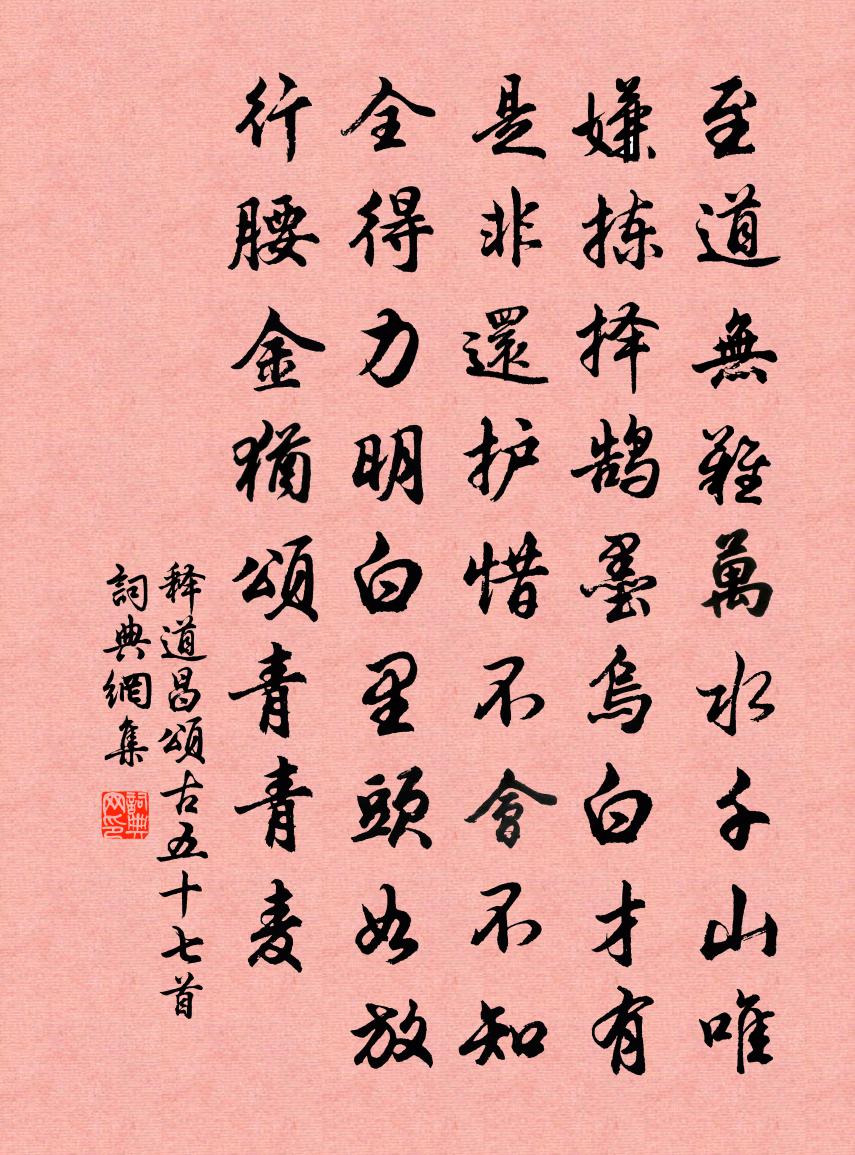 至道無難萬水千山唯
嫌拣择鹄墨烏白才有
是非還护惜不會不知
全得力明白里頭如放
行腰金犹頌青青麦
释道昌頌古五十七首
詞典網集
詞典网印